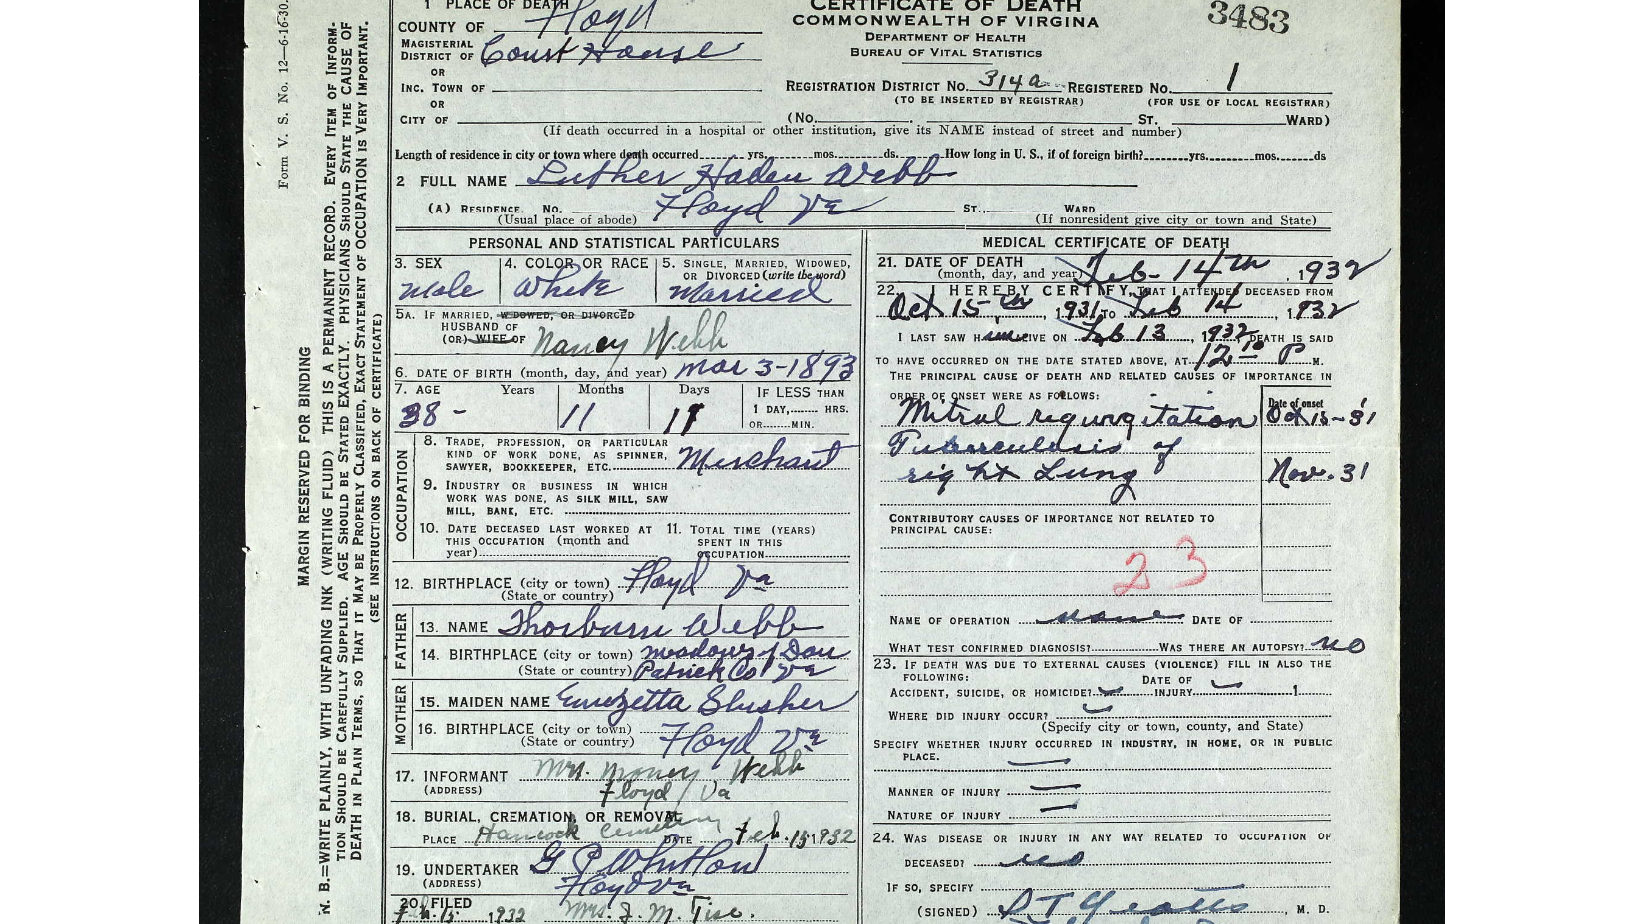 1 PLACE OF DEATH
COUNTY OF Floyd
MAGISTERIAL DISTRICT OF Court House
OR
INC. TOWN OF
OR
CITY OF (No. . ST. WARD)
(If death occurred in a hospital or other institution, give its NAME instead of street and number)
CERTIFICATE OF DEATH
COMMONWEALTH OF VIRGINIA
DEPARTMENT OF HEALTH
BUREAU OF VITAL STATISTICS
3483
REGISTRATION DISTRICT NO. 314a REGISTERED NO. 1
(TO BE INSERTED BY REGISTRAR) (FOR USE OF LOCAL REGISTRAR)
Length of residence in city or town where death occurred yrs. mos. ds. How long in U. S., if of foreign birth? yrs. mos. ds
2 FULL NAME Luther Haden Webb
(A) RESIDENCE. No. Floyd Va ST. WARD
(Usual place of abode) (If nonresident give city or town and State)
PERSONAL AND STATISTICAL PARTICULARS
3. SEX Male
4. COLOR OR RACE White
5. SINGLE, MARRIED, WIDOWED, OR DIVORCED (write the word) Married
5A. IF MARRIED, WIDOWED, OR DIVORCED
HUSBAND OF
(OR) WIFE OF Nancy Webb
6. DATE OF BIRTH (month, day, and year) Mar 3-1893
7. AGE Years Months Days IF LESS THAN
38 - 11 11 1 DAY, HRS.
OR MIN.
OCCUPATION
8. TRADE, PROFESSION, OR PARTICULAR
KIND OF WORK DONE, AS SPINNER,
SAWYER, BOOKKEEPER, ETC. Merchant
9. INDUSTRY OR BUSINESS IN WHICH
WORK WAS DONE, AS SILK MILL, SAW
MILL, BANK, ETC.
10. DATE DECEASED LAST WORKED AT
THIS OCCUPATION (month and
year)
11. TOTAL TIME (YEARS)
SPENT IN THIS
OCCUPATION
12. BIRTHPLACE (city or town) Floyd Va
(State or country)
FATHER
13. NAME Thorburn Webb
14. BIRTHPLACE (city or town) Meadows of Dan
(State or country) Patrick Co Va
MOTHER
15. MAIDEN NAME Emezetta Slusher
16. BIRTHPLACE (city or town)
(State or country) Floyd Va
17. INFORMANT Mrs. Webb
(ADDRESS) Floyd, Va
18. BURIAL, CREMATION, OR REMOVAL
PLACE Hancock Cemetery DATE Feb. 15 1932
19. UNDERTAKER G P Whitlow
(ADDRESS) Floyd Va
20. FILED
Feb. 15, 1932 Mrs. J. M. Tise.
MEDICAL CERTIFICATE OF DEATH
21. DATE OF DEATH
(month, day, and year) Feb- 14th, 1932
22. I HEREBY CERTIFY, THAT I ATTENDED DECEASED FROM
Oct 15th, 1931, TO Feb 14, 1932
I LAST SAW HIM ALIVE ON Feb 13, 1932 DEATH IS SAID
TO HAVE OCCURRED ON THE DATE STATED ABOVE, AT 12 P M.
THE PRINCIPAL CAUSE OF DEATH AND RELATED CAUSES OF IMPORTANCE IN
ORDER OF ONSET WERE AS FOLLOWS: Date of onset
Mitral regurgitation Oct 15-31
Tuberculosis of
right Lung Nov. 31
CONTRIBUTORY CAUSES OF IMPORTANCE NOT RELATED TO
PRINCIPAL CAUSE:
23
NAME OF OPERATION none DATE OF
WHAT TEST CONFIRMED DIAGNOSIS? WAS THERE AN AUTOPSY? no
23. IF DEATH WAS DUE TO EXTERNAL CAUSES (VIOLENCE) FILL IN ALSO THE
FOLLOWING:
ACCIDENT, SUICIDE, OR HOMICIDE? DATE OF INJURY 1
WHERE DID INJURY OCCUR?
(Specify city or town, county, and State)
SPECIFY WHETHER INJURY OCCURRED IN INDUSTRY, IN HOME, OR IN PUBLIC
PLACE.
MANNER OF INJURY
NATURE OF INJURY
24. WAS DISEASE OR INJURY IN ANY WAY RELATED TO OCCUPATION OF
DECEASED? no
IF SO, SPECIFY
(SIGNED) , M. D.
Form V. S. No. 12—6-16-30.
MARGIN RESERVED FOR BINDING
N. B.—WRITE PLAINLY, WITH UNFADING INK (WRITING FLUID) THIS IS A PERMANENT RECORD. EVERY ITEM OF INFORM-
TION SHOULD BE CAREFULLY SUPPLIED. AGE SHOULD BE STATED EXACTLY. PHYSICIANS SHOULD STATE THE CAUSE OF
DEATH IN PLAIN TERMS, SO THAT IT MAY BE PROPERLY CLASSIFIED, EXACT STATEMENT OF OCCUPATION IS VERY IMPORTANT.
(SEE INSTRUCTIONS ON BACK OF CERTIFICATE)